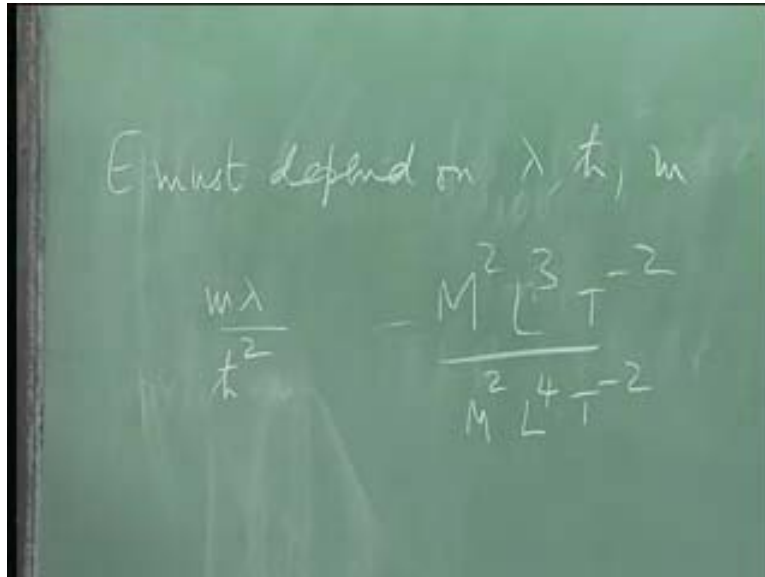 E must depend on λ ħ, m
mλ/ħ² - M² L³ T⁻² / M² L⁴ T⁻²